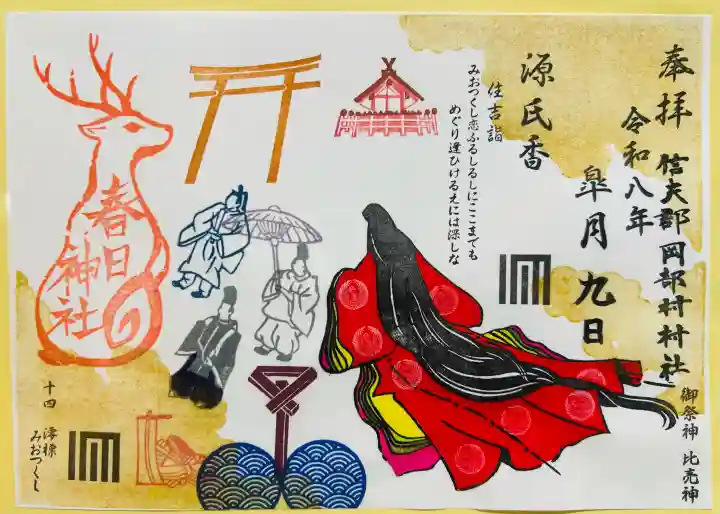 奉拝
信夫郡岡部村村社
令和八年
皐月九日
御祭神 比売神
源氏香
住吉詣
みおつくし恋ふるしるしにここまでも
めぐり逢ひけるえには深しな
春日
神社
十四 澪標
みおつくし